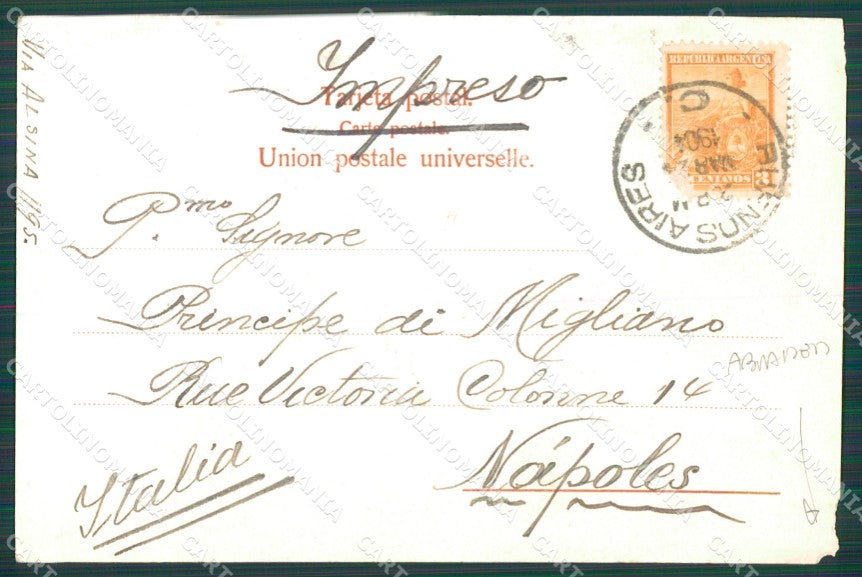 Impreso
Tarjeta postal.
Carte postale.
Union postale universelle.
REPUBLICA ARGENTINA
CENTAVOS
BUENOS AIRES
C.
1904
MAR
2 P M
P.mo Signore
Principe di Migliano
Rue Victoria Colonne 14
Nápoles
Italia
VIA ALSINA 1195.
CARTOLINOMANIA